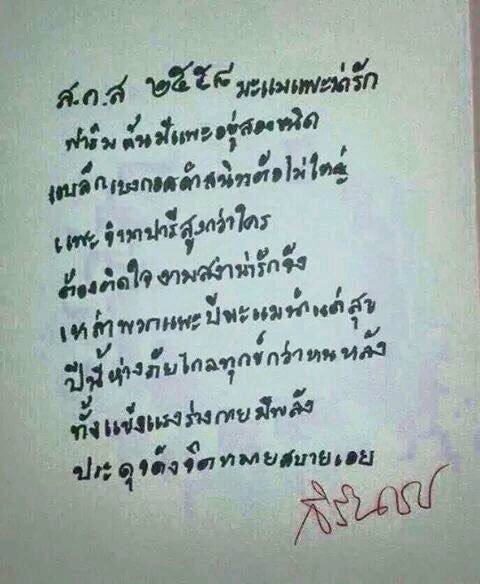 ส.ค.ส ๒๕๕๘ มะแมแพะน่ารัก
ฟาร์ม ฉันมีแพะอยู่สองชนิด
แบล็กเบงกอลดำสนิทตัวไม่ใหญ่
แพะจำนาปารีสูงกว่าใคร
ต้องติดใจงามสง่าน่ารักจัง
เหล่าพวกแพะปีมะแมนำแต่สุข
ปีนี้ห่างภัยไกลทุกข์กว่าหนหลัง
ทั้งแข็งแรงร่างกายมีพลัง
ประดุจดังจิตหมายสบายเอย
สิรินธร